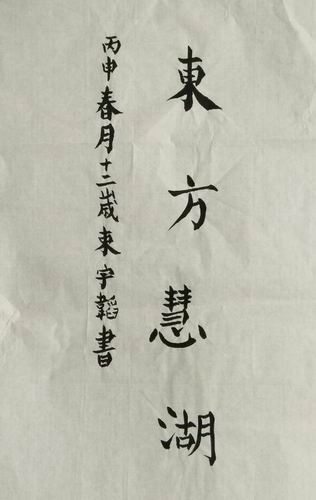 東方慧湖
丙申春月十二歲束宇韜書